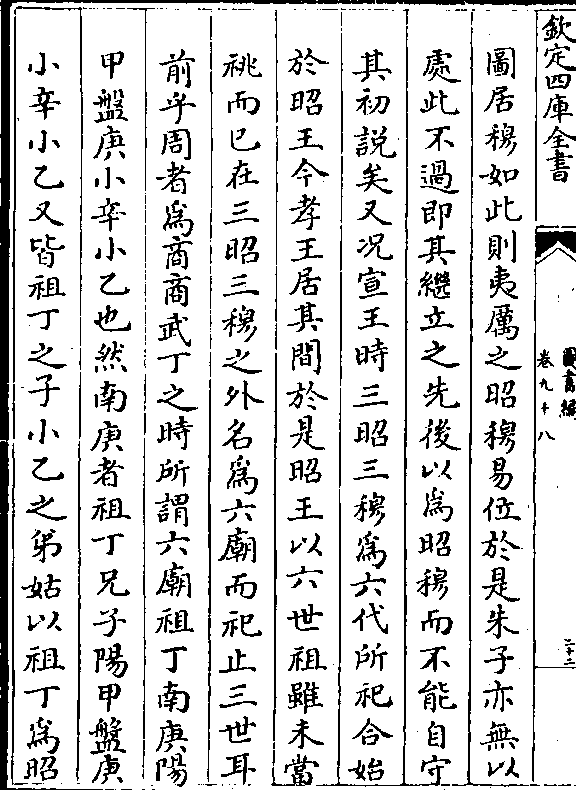 欽定四庫全書
圖書編
卷九十八
二十二
圖居穆如此則夷厲之昭穆易位於是朱子亦無以
處此不過即其繼立之先後以為昭穆而不能自守
其初説矣又况宣王時三昭三穆為六代所祀合始
於昭王今孝王居其間於是昭王以六世祖雖未當
祧而已在三昭三穆之外名為六廟而祀止三世耳
前乎周者為商商武丁之時所謂六廟祖丁南庚陽
甲盤庚小辛小乙也然南庚者祖丁兄子陽甲盤庚
小辛小乙又皆祖丁之子小乙之弟姑以祖丁為昭